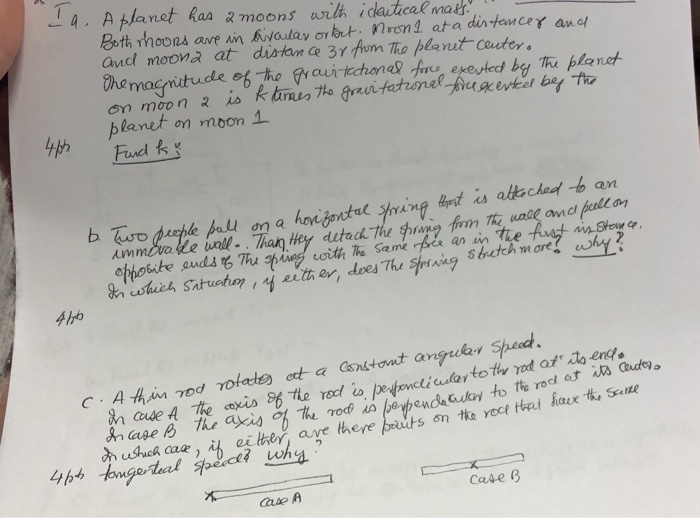 I a. A planet has 2 moons with identical mass.
Both moons are in circular orbit. Moon 1 at a distance r and
and moon 2 at distance 3r from the planet center.
The magnitude of the gravitational force exerted by the planet
on moon 2 is k times the gravitational force exerted by the
planet on moon 1
4pts Find k:
b. Two people pull on a horizontal spring that is attached to an
immovable wall. Then they detach the spring from the wall and pull on
opposite ends of the spring with the same force as in the first instance.
In which situation, if either, does the spring stretch more? Why?
4pts
c. A thin rod rotates at a constant angular speed.
In case A the axis of the rod is perpendicular to the rod at its end.
In case B the axis of the rod is perpendicular to the rod at its center.
In which case, if either, are there points on the rod that have the same
4pts tangential speed? Why?
Case A
Case B